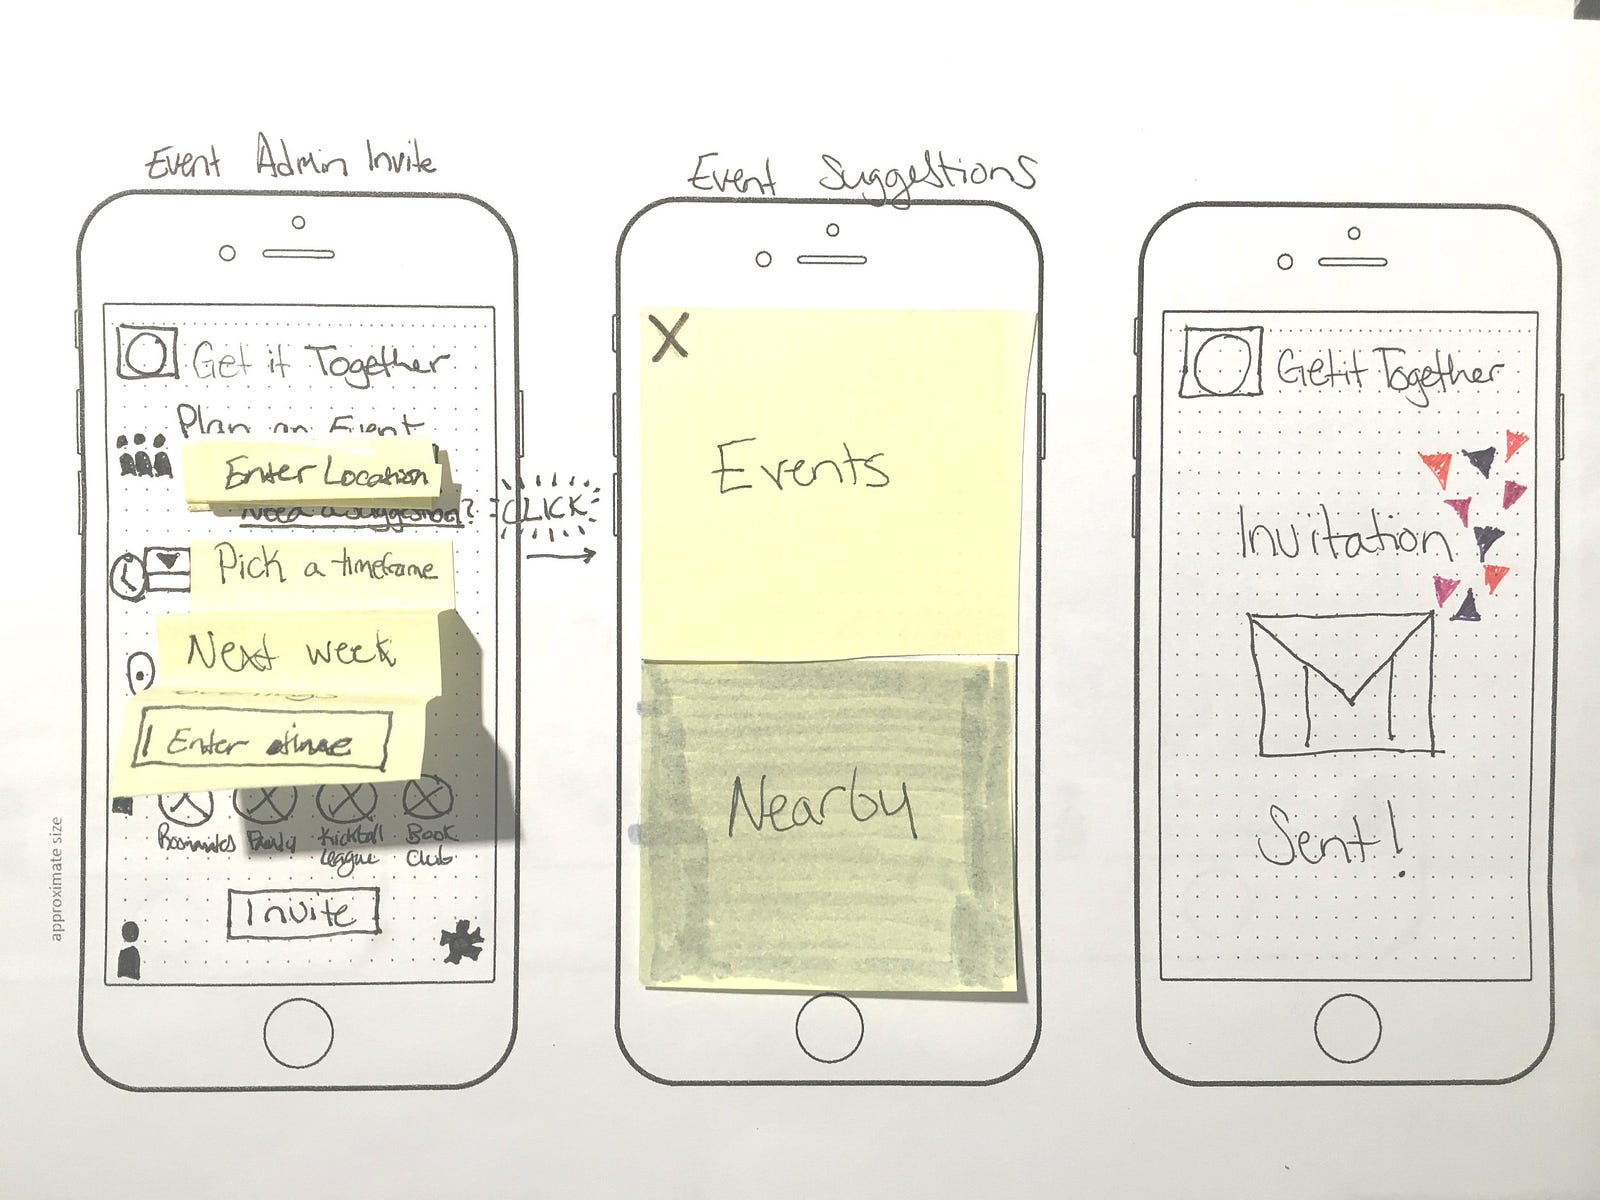 Event Admin Invite
Get it Together
Plan an Event
Enter Location
Need a suggestion?
CLICK
Pick a timeframe
Next week
Enter
Roommates
Family
Kickball
League
Book
Club
Invite
approximate size
Event Suggestions
X
Events
Nearby
Get it Together
Invitation
Sent!